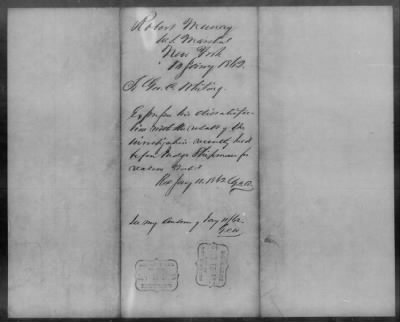 Robert Murray
U.S. Marshal
New York
10 Jany 1862.
To Geo. C. Whiting.
Expresses his dissatisfac-
tion with the result of the
investigation recently had
before Judge Shipman for
reasons
Rec Jany 11. 1862
See my answer of Jany 11/62
G.C.W.